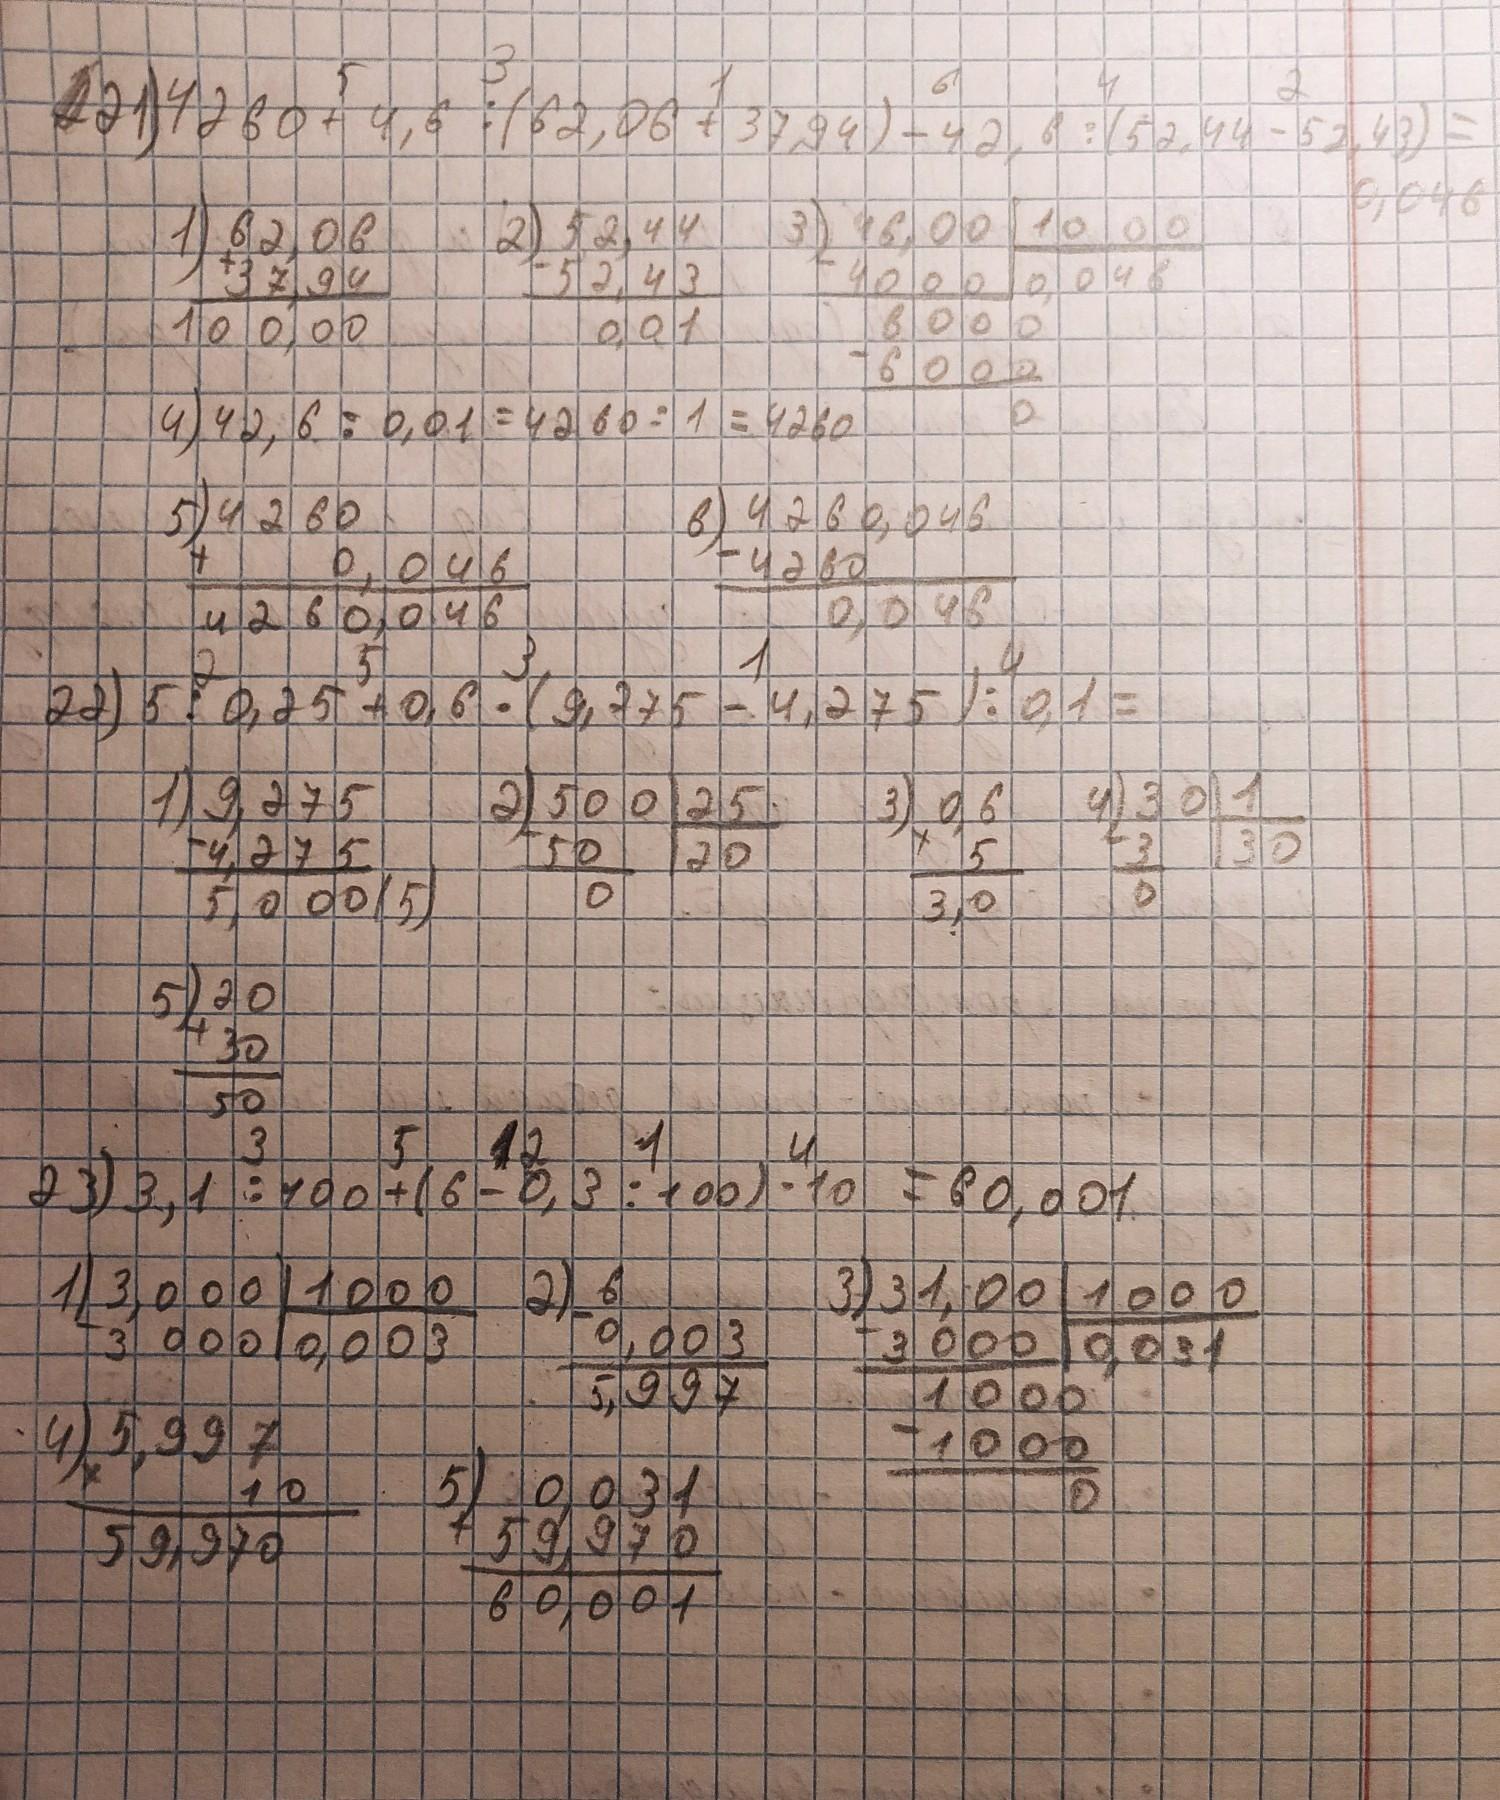 21) 4260 + 4,6 : (62,06 + 37,94) - 42,6 : (52,44 - 52,43) =
5 3 1 6 4 2
0,046
1) 62,06 2) 52,44 3) 46,00 | 1000
+ 37,94 - 52,43 - 4000 0,046
100,00 0,01 6000
- 6000
0
4) 42,6 : 0,01 = 4260 : 1 = 4260
5) 4260 6) 4260,046
+ 0,046 - 4260
4260,046 0,046
2 5 3 1 4
22) 5 : 0,25 + 0,6 · (9,275 - 4,275) : 0,1 =
1) 9,275 2) 500 | 25 3) 0,6 4) 30 | 1
- 4,275 - 50 20 × 5 - 3 30
5,000 (5) 0 3,0 0
5) 20
+ 30
50
3 5 2 1 4
23) 3,1 : 100 + (6 - 0,3 : 100) · 10 = 60,001
1) 3,000 | 1000 2) 6 3) 31,00 | 1000
- 3000 0,003 - 0,003 - 3000 0,031
5,997 1000
4) 5,997 - 1000
× 10 5) 0,031 0
59,970 + 59,970
60,001